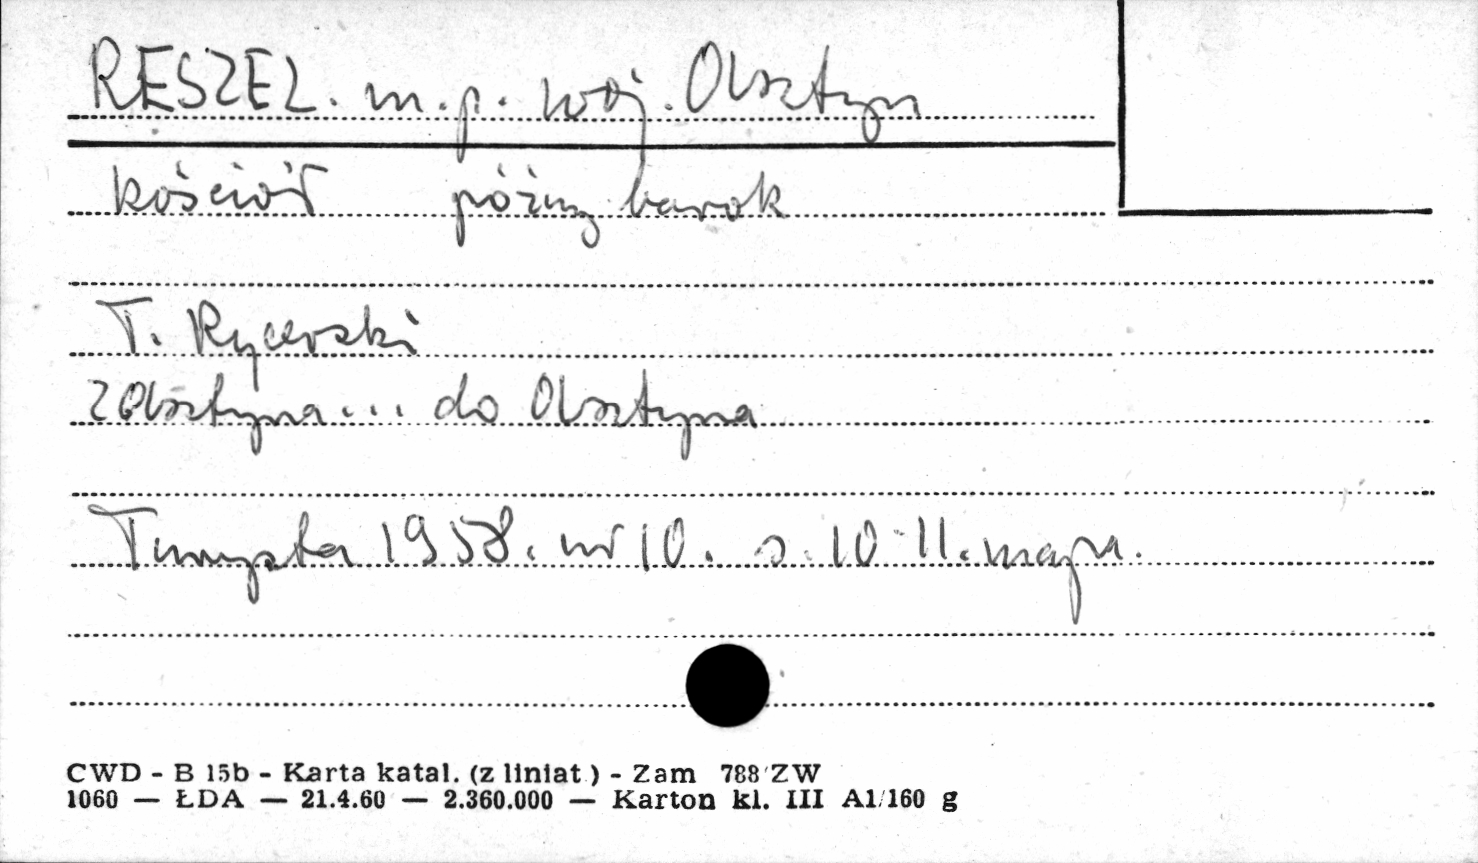 RESZEL. m.p. woj. Olsztyn
kościół późny barok
T. Rycerski
z Olsztyna... do Olsztyna
Turysta 1958. nr 10. s. 10-11. mapa.
CWD - B 15b - Karta katal. (z liniat.) - Zam 788/ZW
1060 — ŁDA — 21.4.60 — 2.360.000 — Karton kl. III A1/160 g